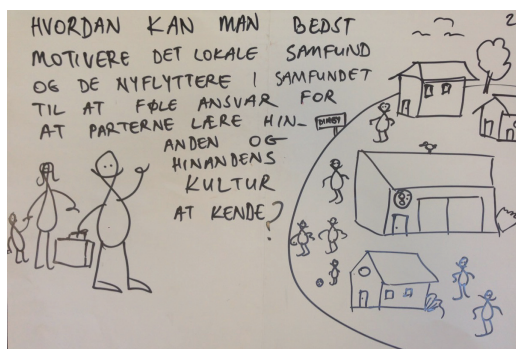 HVORDAN KAN MAN BEDST
MOTIVERE DET LOKALE SAMFUND
OG DE NYFLYTTERE I SAMFUNDET
TIL AT FØLE ANSVAR FOR
AT PARTERNE LÆRE HIN-
ANDEN OG
HINANDENS
KULTUR
AT KENDE?
2